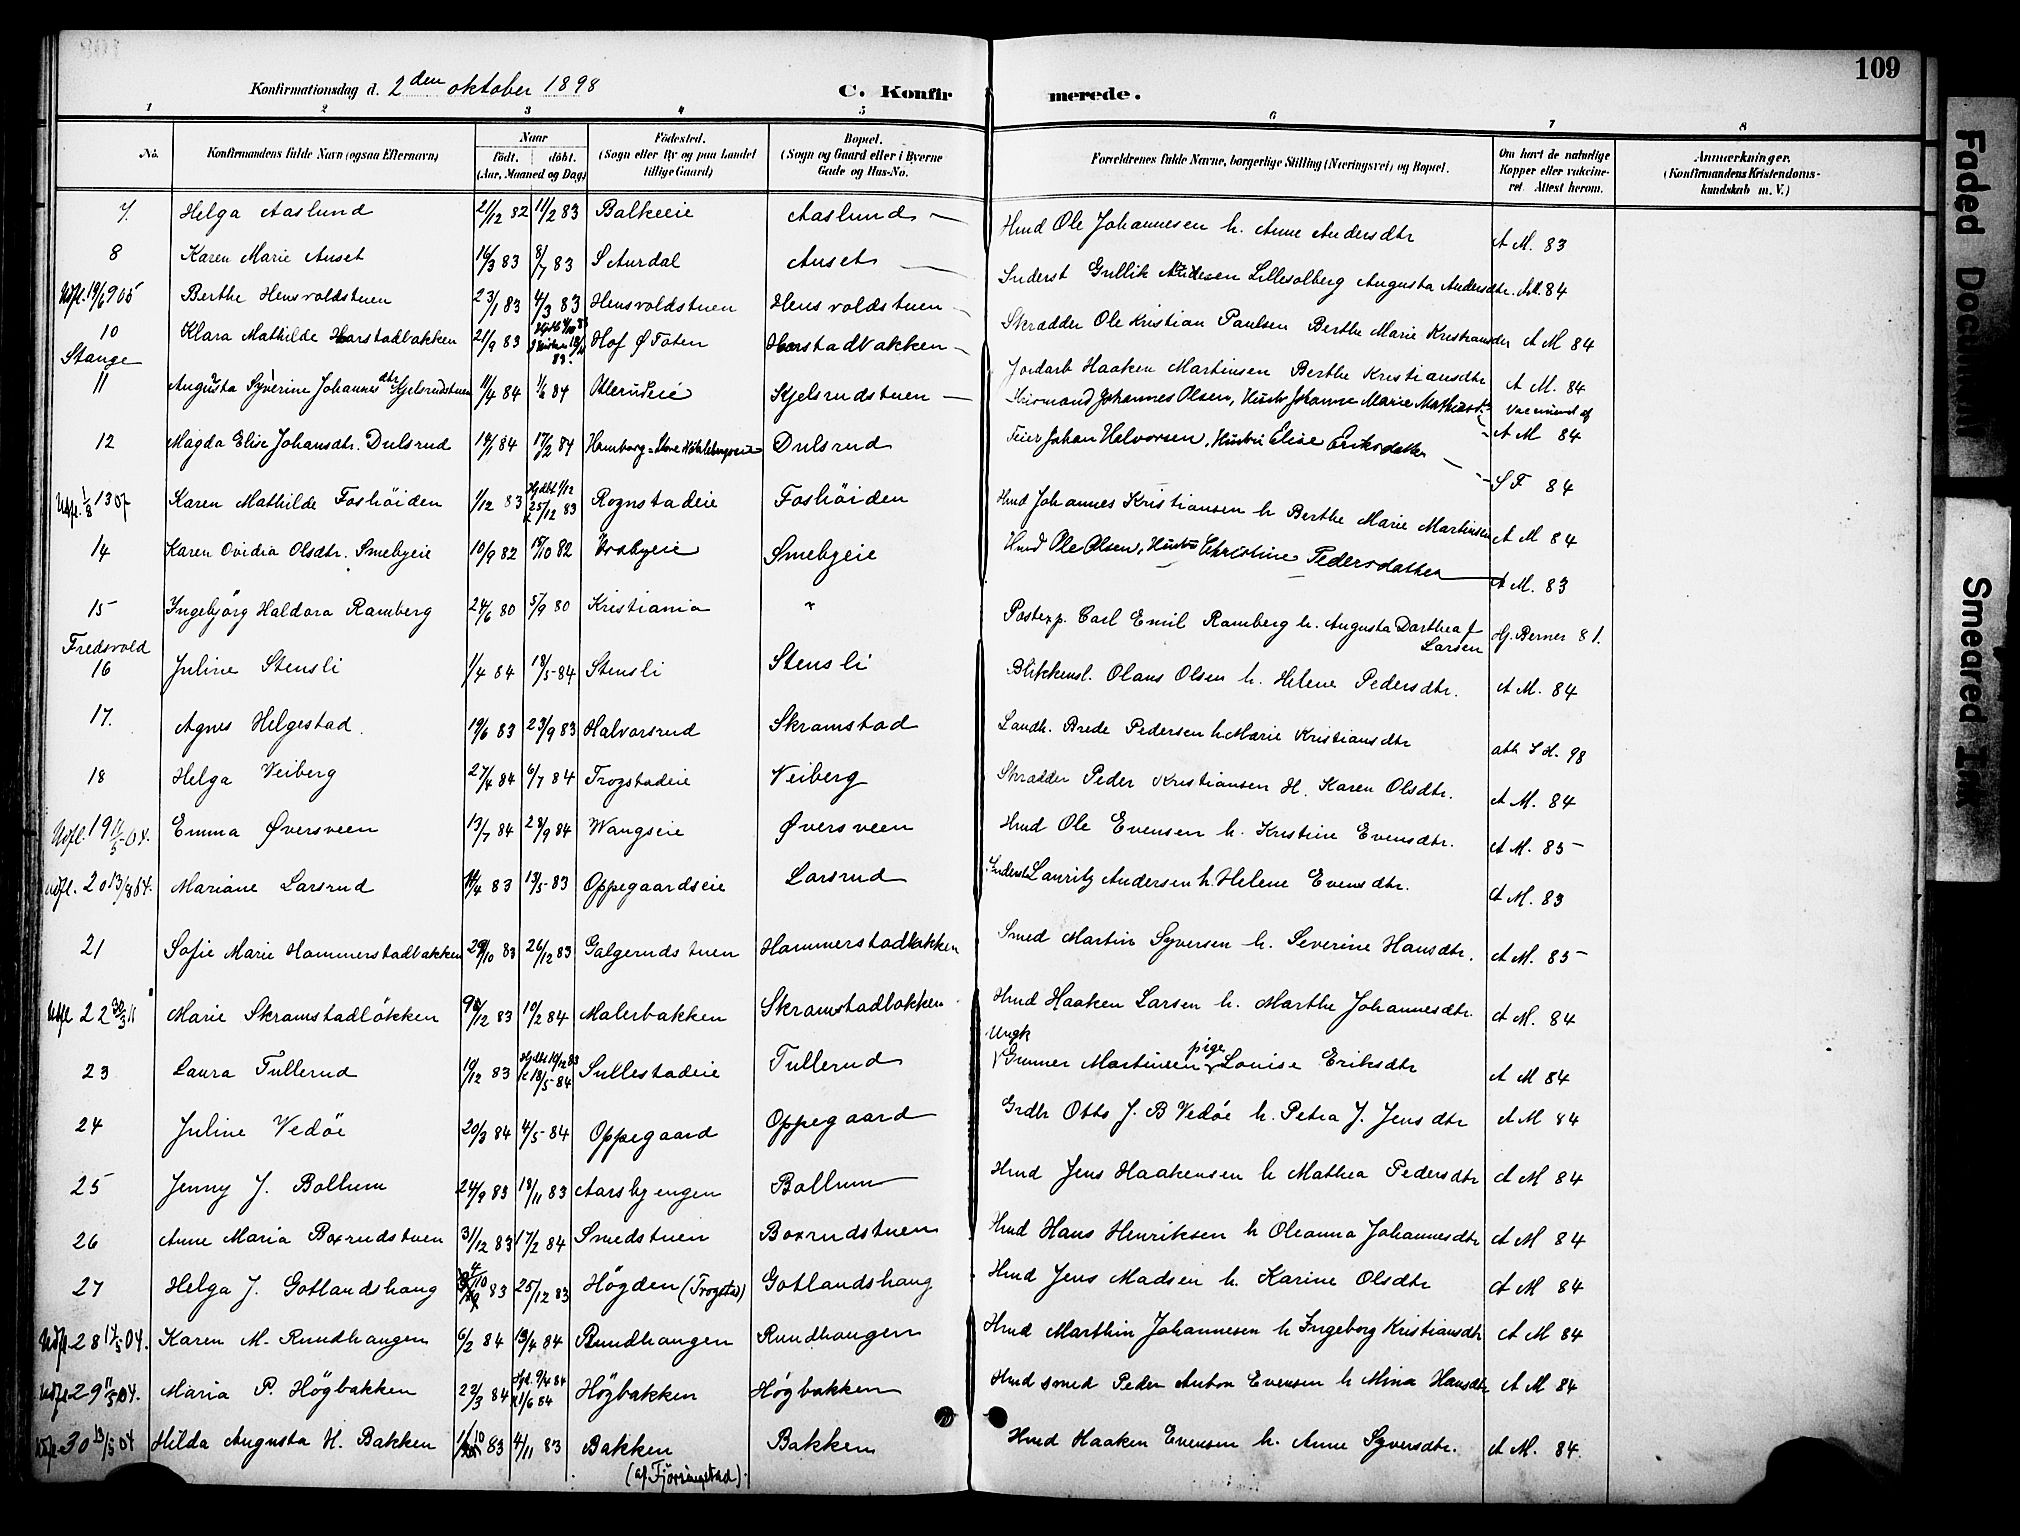 109
Konfirmationsdag d. 2den oktober 1898 C. Konfirmerede.
1 2 3 4 5 6 7 8
No. Konfirmandens fulde Navn (ogsaa Efternavn) Naar født. døbt. (Aar, Maaned og Dag) Fødested. (Sogn eller By og paa Landet tillige Gaard) Bopæl. (Sogn og Gaard eller i Byerne Gade og Hus-No. Forældrenes fulde Navne, borgerlige Stilling (Næringsvei) og Bopæl. Om havt de naturlige Kopper eller vaccineret. Attest herom. Anmærkninger. (Konfirmandens Kristendomskundskab m. V.)
7. Helga Aaslund 21/12 82 11/2 83 Balkeeie Aaslund Hmd Ole Johannesen h. Anne Andersdtr A M. 83
8 Karen Marie Auset 16/3 83 8/7 83 S Aurdal Auset Inderst Gullik Andersen Lillesolberg Augusta Andersdtr. AM. 84
Udfl. 19/6 905 Berthe Hensvoldstuen 23/1 83 4/3 83 Hensvoldstuen Hensvoldstuen Skrædder Ole Kristian Paulsen Berthe Marie Kristiansdtr A M 84
10 Stange Klara Mathilde Harstadbakken 21/9 83 Hof Ø Toten Harstadbakken Jordarb Haaken Martinsen Berthe Kristiansdtr A M. 84
11 Augusta Syverine Johannesdtr Kjelsrudstuen 11/4 84 1/6 84 Alerudeie Kjelsrudstuen Husmand Johannes Olsen, Hustr Johanne Marie Mathiasdtr Vaccineret af A M 84
12 Magda Elise Johansdtr. Dulsrud 19/1 84 17/2 84 Dulsrud Feier Johan Halvorsen, Hustru Elise Eriksdatter S F 84
Udfl. 1/8 13 07 Karen Mathilde Foshöiden 1/12 83 Hjdbt 1/12 K 25/12 83 Rognstadeie Foshöiden Hmd Johannes Kristiansen h Berthe Marie Martinsen A M 84
14 Karen Ovidia Olsdtr. Smebyeie 10/9 82 15/10 82 Smebyeie Hmd Ole Olsen, Hustru Christine Pedersdatter A M. 83
15 Fredsvold Ingebjörg Haldora Ramberg 24/6 80 5/9 80 Kristiania " Postexp. Carl Emil Ramberg h. Augusta Dorthea f Larsen Hj. Berner 81.
16 Juline Stensli 1/4 84 18/5 84 Stensli Stensli Blikkensl. Olaus Olsen h. Helene Pedersdtr. A M. 84
17. Agnes Helgestad 19/6 83 23/9 83 Halvorsrud Skramstad Landh. Brede Pedersen h Marie Kristiansdtr att S H. 98
18 Helga Veiberg 27/4 84 6/7 84 Trogstadeie Veiberg Skrædder Peder Kristiansen H. Karen Olsdtr. A M. 84
Udfl. 19 11/5 04. Emma Øversveen 13/7 84 28/9 84 Wangseie Øversveen Hmd Ole Evensen h. Kristine Evensdtr. A M. 85
Udfl. 20 13/4 04. Mariane Larsrud 14/4 83 13/5 83 Oppegaardseie Larsrud Inderst Lauritz Andersen h. Helene Evensdtr. A M. 83
21 Sofie Marie Hammerstadbakken 29/10 83 26/12 83 Galgerudstuen Hammerstadbakken Smed Martin Syversen h. Severine Hansdtr. A M. 85
Udfl 22 30/3 11 Marie Skramstadløkken 12 83 10/2 84 Malerbakken Skramstadbakken Hmd Haaken Larsen h. Marthe Johannesdtr. A M. 84
23 Laura Tullerud 19/12 83 Hjdbt 19/12 83 K 18/5 84 Sullestadeie Tullerud Ungk Gunner Martinsen pige Lovise Eriksdtr A M 84
24 Juline Vedøe 20/3 84 4/5 84 Oppegaard Oppegaard Grdbr Otto J. B Vedøe h. Petra J. Jensdtr A M 84
25 Jenny J. Bollum 24/9 83 18/11 83 Aarsbyengen Bollum Hmd Jens Haakensen h Mathea Pedersdtr A M 84
26 Anne Maria Boxrudstuen 31/12 83 17/2 84 Smedstuen Boxrudstuen Hmd Hans Henriksen h Oleanna Johannesdtr A M 84
27 Helga J. Gotlandshaug 4/10 83 25/12 83 Högden (Trogstad) Gotlandshaug Hmd Jens Madsen h. Karine Olsdtr A M 84
Udfl. 28 14/5 04. Karen M. Rundhaugen 6/2 84 13/4 84 Rundhaugen Rundhaugen Hmd Marthin Johannesen h Ingeborg Kristiansdtr A M 84
Udfl 29 11/5 04. Maria P. Högbakken 22/3 84 Hjd. 9/4 84 K 1/6 84 Högbakken Högbakken Hmd smed Peder Anton Evensen h Mina Hansdtr A M 84
Udfl 30 13/5 04 Hilda Augusta H. Bakken 1/10 83 4/11 83 Bakken (af Fjørringstad). Bakken Hmd Haaken Evensen h. Anne Syversdtr. A M. 84.
Faded Document
Smeared Ink